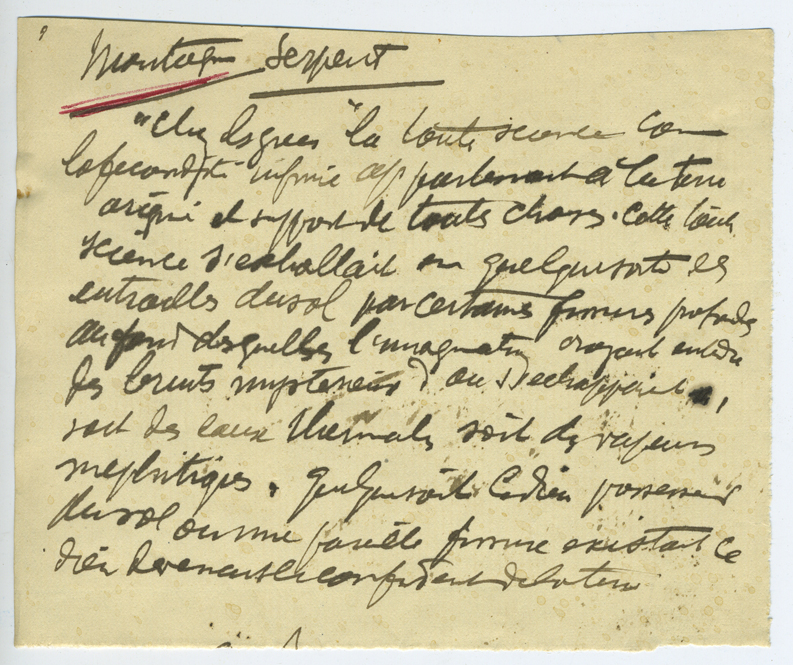 9
Montagne Serpent
"Chez les grecs "la toute science comme
la fecondité infinie appartenait à la terre
origine et support de toutes choses. Cette toute
science s'exhallait en quelque sorte des
entrailles du sol par certaines fissures profondes
au fond desquelles l'imagination croyait entendre
des bruits mysterieux d'ou s'echappaient,
soit des eaux thermales soit des vapeurs
mephitiques. Quelquesoit le dieu possesseur
du sol ou une pareille fissure existait ce
dieu devenait le confident de la terre